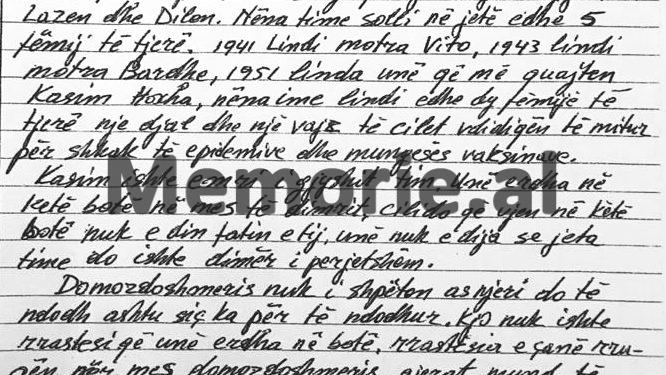 Lazen dhe Dilon. Nëna time solli në jetë edhe 5
fëmij të tjerë. 1941 Lindi motra Vito, 1943 lindi
motra Bardhe, 1951 linda unë që më quajten
Kasim Hoxha, nënaime lindi edhe dy fëmijë të
tjerë nje djal dhe një vajz të cilet vdiqën të mitur
për shkak të epidemive dhe mungesës vaksinave.
Kasim ishte emri i gjyshit tim unë erdha në
ketë botë në mes të dimrit, cilido që vjen në këtë
botë nuk e din fatin e tij, unë nuk e dija se jeta
time do ishte dimër i perjetshëm.
Domozdoshmeris nuk i shpëton asnjeri do të
ndodh ashtu siç ka për të ndodhur. Kjo nuk ishte
rrastesi që unë erdha në botë, rrastësia e çanë rru-
gën për mes domozdoshmeris, gjerat mund të
Memorie.al